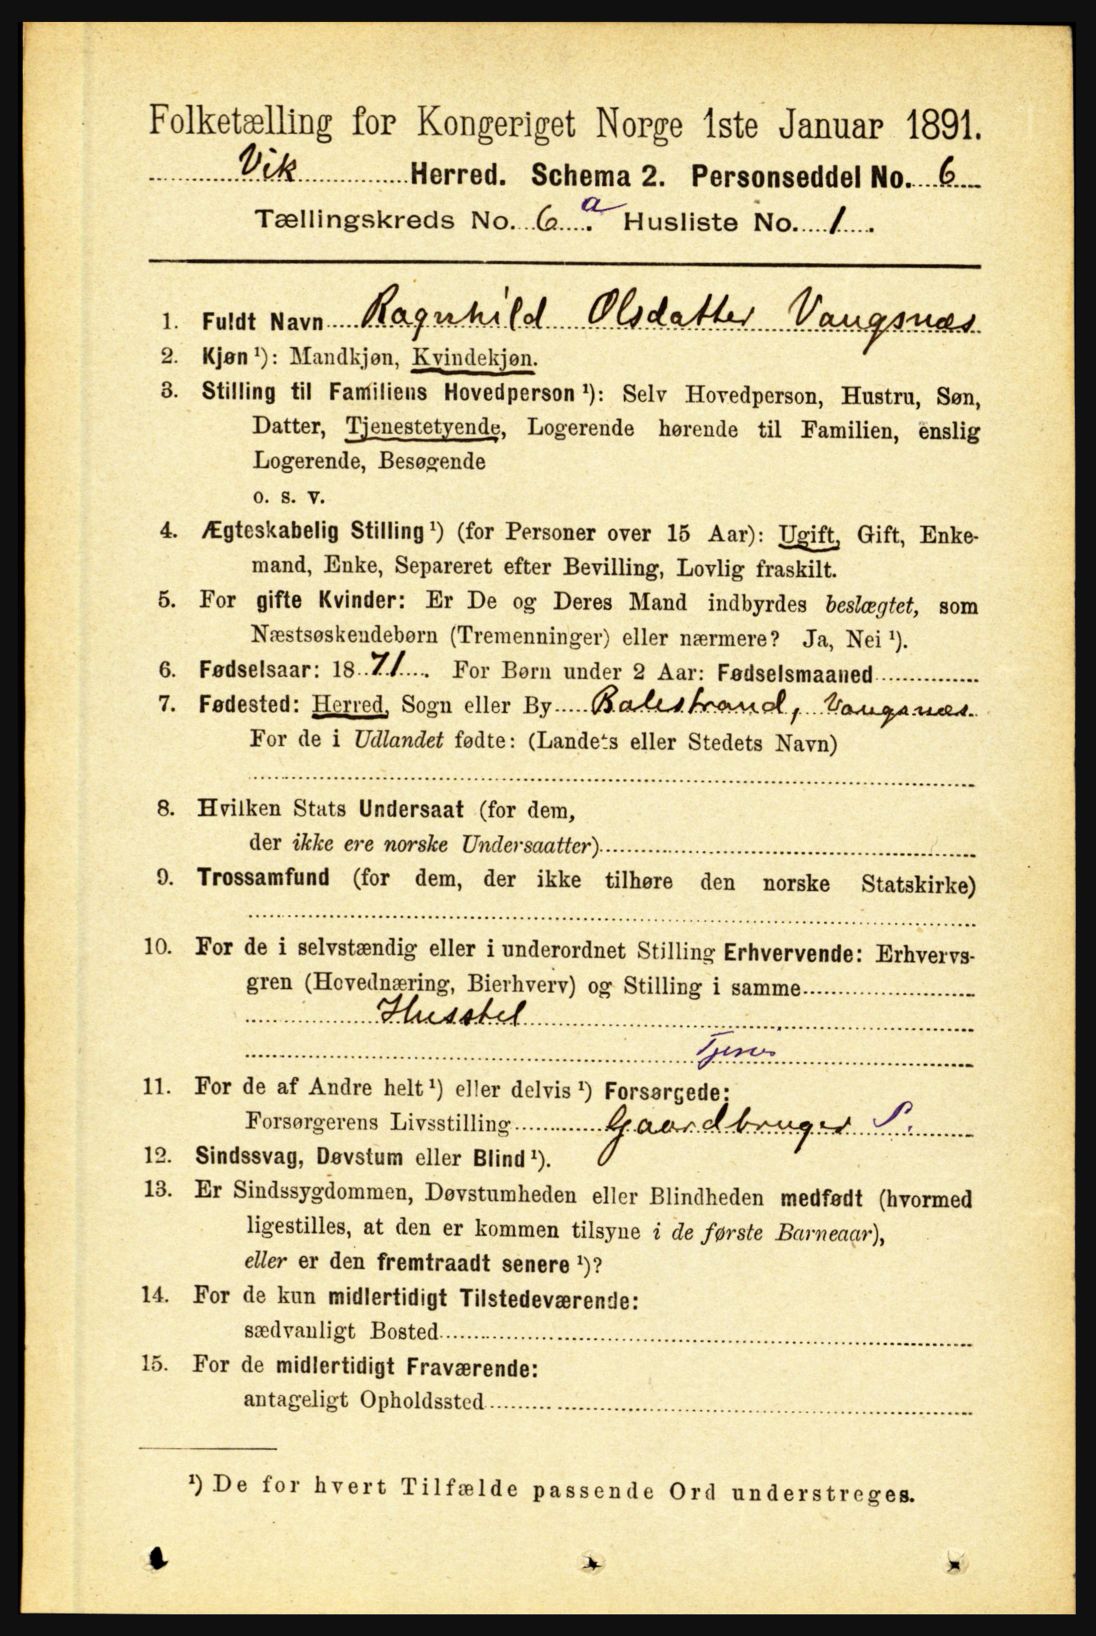 Folketælling for Kongeriget Norge 1ste Januar 1891.
Vik Herred. Schema 2. Personseddel No. 6
Tællingskreds No. 6 a. Husliste No. 1.
1. Fuldt Navn Ragnhild Olsdatter Vangsnæs
2. Kjøn ¹): Mandkjøn, Kvindekjøn.
3. Stilling til Familiens Hovedperson ¹): Selv Hovedperson, Hustru, Søn,
Datter, Tjenestetyende, Logerende hørende til Familien, enslig
Logerende, Besøgende
o. s. v.
4. Ægteskabelig Stilling ¹) (for Personer over 15 Aar): Ugift, Gift, Enke-
mand, Enke, Separeret efter Bevilling, Lovlig fraskilt.
5. For gifte Kvinder: Er De og Deres Mand indbyrdes beslægtet, som
Næstsøskendebørn (Tremenninger) eller nærmere? Ja, Nei ¹).
6. Fødselsaar: 1871. For Børn under 2 Aar: Fødselsmaaned
7. Fødested: Herred, Sogn eller By Balestrand, Vangsnæs.
For de i Udlandet fødte: (Landets eller Stedets Navn)
8. Hvilken Stats Undersaat (for dem,
der ikke ere norske Undersaatter)
9. Trossamfund (for dem, der ikke tilhøre den norske Statskirke)
10. For de i selvstændig eller i underordnet Stilling Erhvervende: Erhvervs-
gren (Hovednæring, Bierhverv) og Stilling i samme
Husstel
11. For de af Andre helt ¹) eller delvis ¹) Forsørgede:
Forsørgerens Livsstilling Gaardbruger S.
12. Sindssvag, Døvstum eller Blind ¹).
13. Er Sindssygdommen, Døvstumheden eller Blindheden medfødt (hvormed
ligestilles, at den er kommen tilsyne i de første Barneaar),
eller er den fremtraadt senere ¹)?
14. For de kun midlertidigt Tilstedeværende:
sædvanligt Bosted
15. For de midlertidigt Fraværende:
antageligt Opholdssted
¹) De for hvert Tilfælde passende Ord understreges.